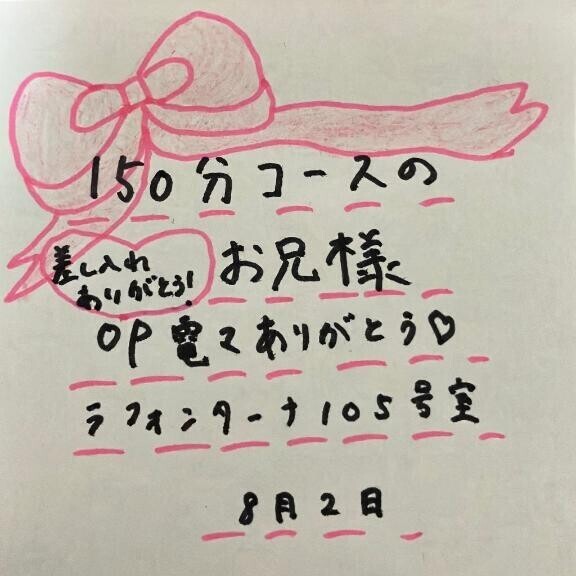 150分コースの
差し入れ
ありがとう!
お兄様
OP電マありがとう♡
ラフォンターナ105号室
8月2日